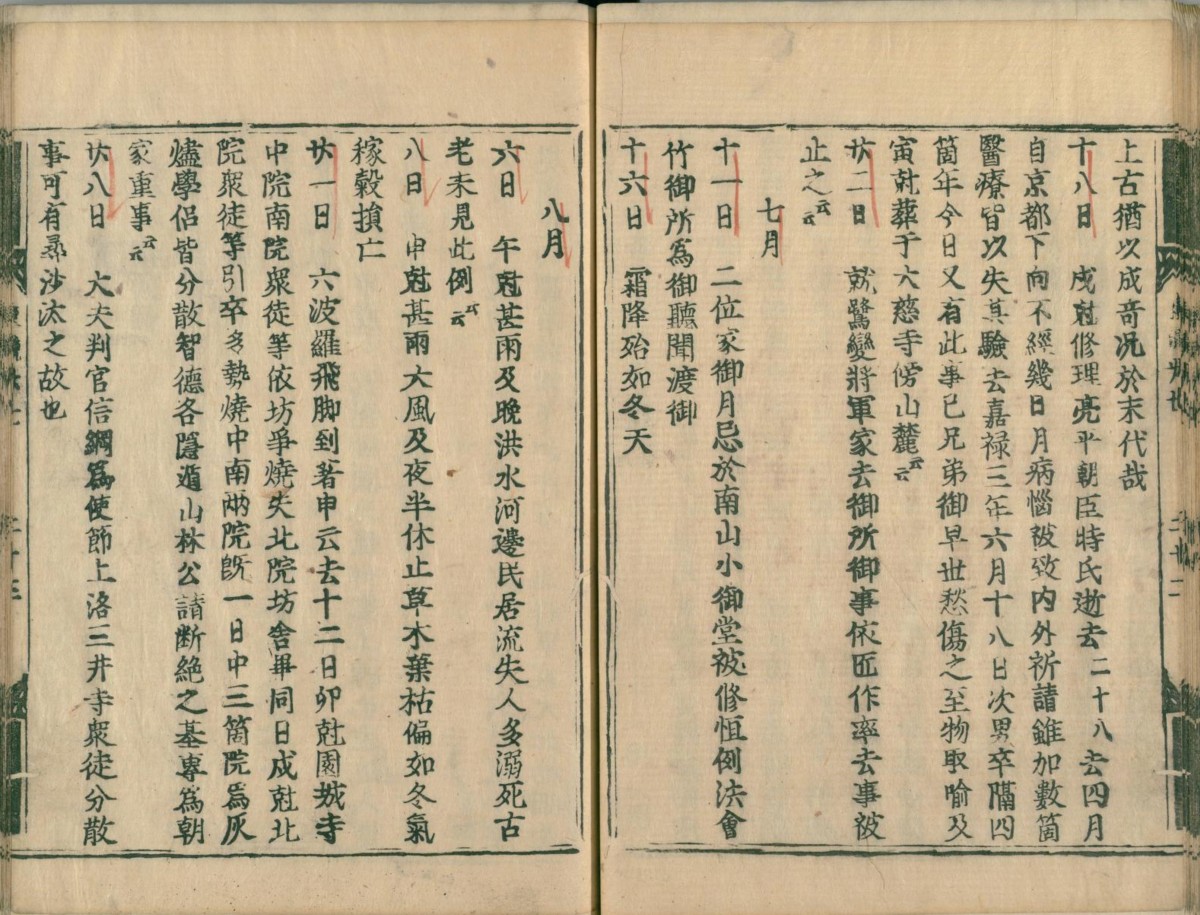 上古猶以成奇况於末代哉
十八日　戌尅修理亮平朝臣時氏逝去二十八去四月
自京都下向不經幾日月病惱被致内外祈請雖加數箇
醫療皆以失其驗去嘉禄三年六月十八日次男卒隔四
箇年今日又有此事已兄弟御早世愁傷之至物取喻及
寅尅葬于大慈寺傍山麓云云
廿二日　就鷺變將軍家去御所御事依匠作率去事被
止之云云
七月
十一日　二位家御月忌於南山小御堂被修恒例法會
竹御所爲御聽聞渡御
十六日　霜降殆如冬天
八月
六日　午尅甚雨及晩洪水河邊民居流失人多溺死古
老未見此例云云
八日　申尅甚雨大風及夜半休止草木葉枯偏如冬氣
稼穀損亡
廿一日　六波羅飛脚到著申云去十二日卯尅園城寺
中院南院衆徒等依坊爭燒失北院坊舎畢同日戌尅北
院衆徒等引卒多勢燒中南兩院既一日中三箇院爲灰
燼學侶皆分散智德各隱遁山林公請断絶之基專爲朝
家重事云云
廿八日　大夫判官信綱爲使節上洛三井寺衆徒分散
事可有尋沙汰之故也